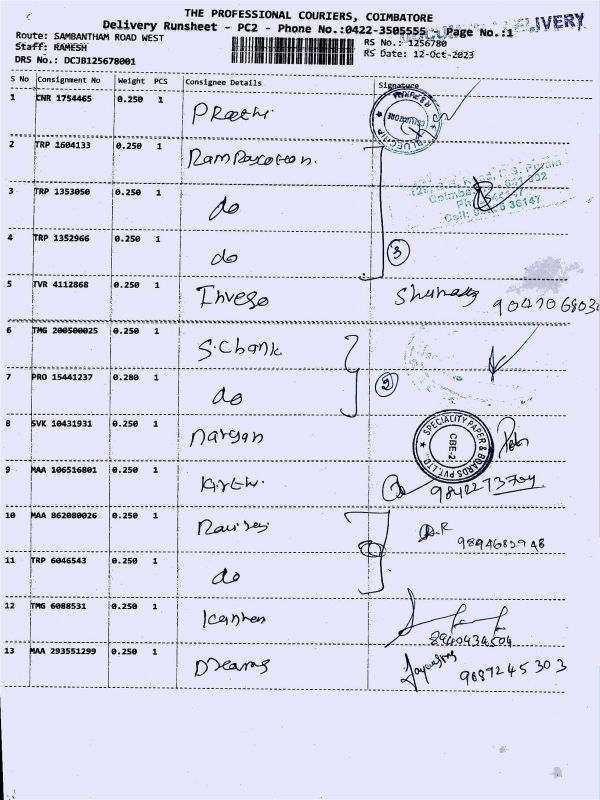 THE PROFESSIONAL COURIERS, COIMBATORE
Delivery Runsheet - PC2 - Phone No.:0422-3505555 Page No.:1
DELIVERY
Route: SAMBANTHAM ROAD WEST
RS No.: 1256780
Staff: RAMESH
RS Date: 12-Oct-2023
DRS No.: DCJB125678001
S No Consignment No Weight PCS Consignee Details Signature
1 CNR 1754465 0.250 1 Prathi
2 TRP 1604133 0.250 1
3 TRP 1353050 0.250 1 do
4 TRP 1352966 0.250 1 do
3
5 TVR 4112868 0.250 1
6 TMG 200500025 0.250 1 S.Chank
7 PRO 15441237 0.280 1 do
2
8 SVK 10431931 0.250 1 Naryan
SPECIALITY PAPER & BOARDS PVT. LTD.
CBE-2
9 MAA 106516801 0.250 1 Kirthi
9842273704
10 MAA 862080026 0.250 1
11 TRP 6046543 0.250 1 do
12 TMG 6088531 0.250 1
8940434504
13 MAA 293551299 0.250 1